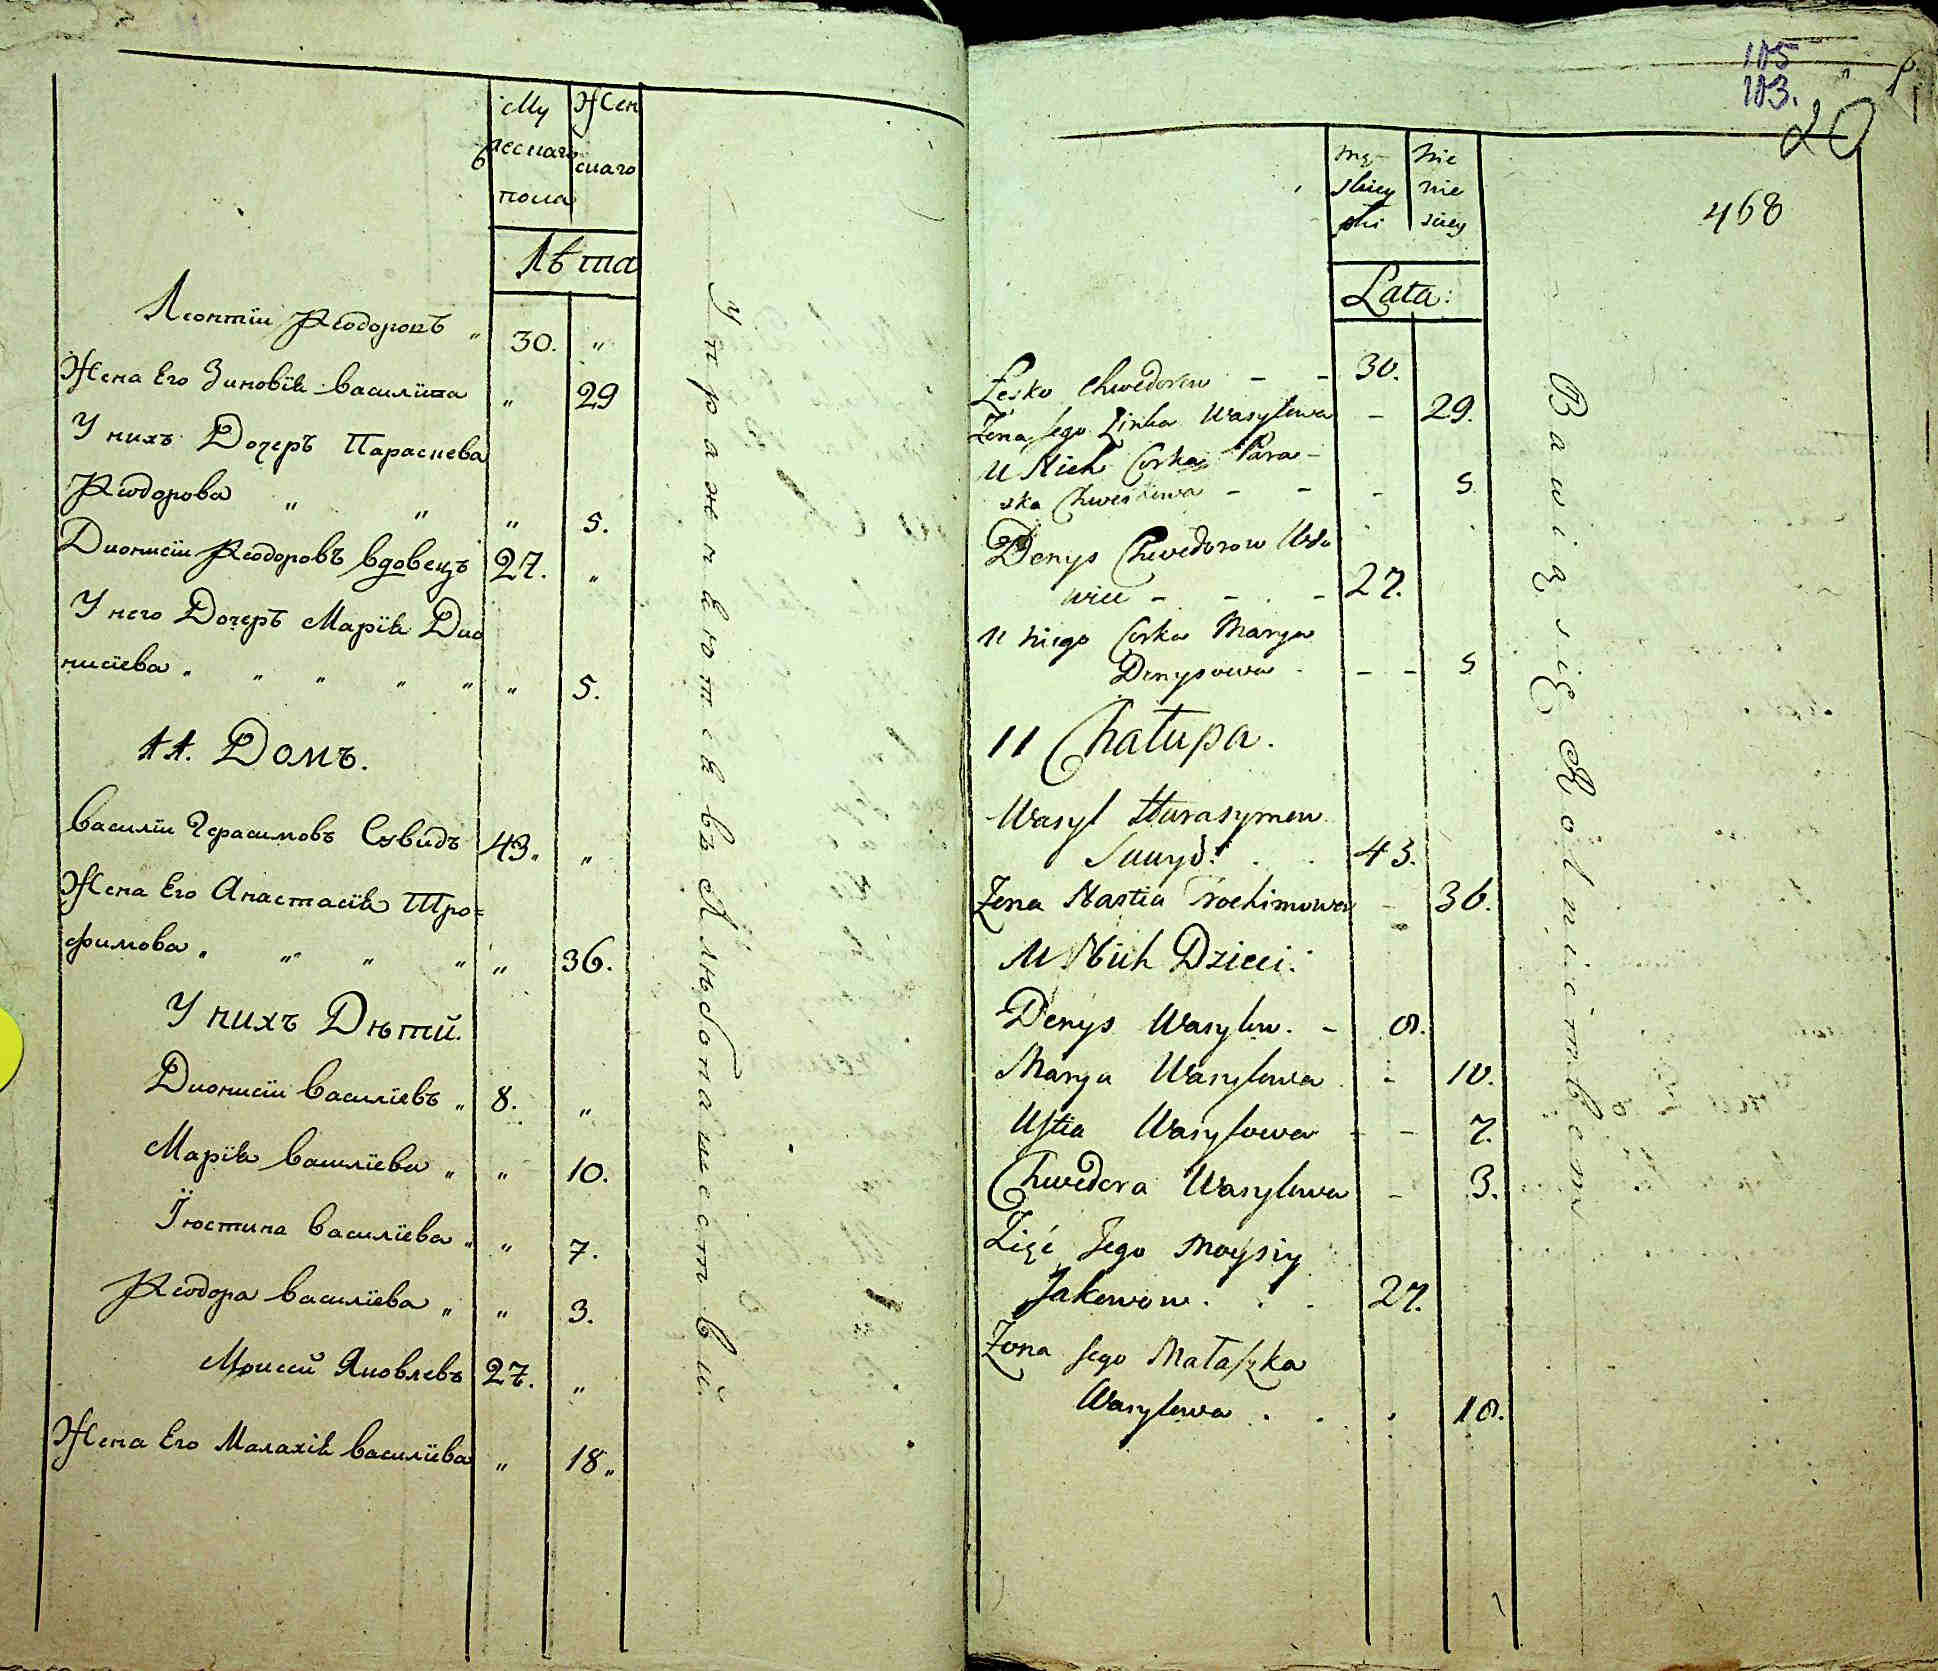 Му
жескаго
пола
Жен
скаго
Лѣта
Леонтїи Ѳеодоровъ „ 30. „
Жена Его Зиновїя Василїева „ 29
У нихъ Дочеръ Параскева
Ѳеодорова „ „ „ 5.
Дионисїи Ѳеодоровъ вдовецъ 27. „
У него Дочеръ Марїя Дио
нисїева „ „ „ „ „ „ 5.
11. Домъ.
Василїи Герасимовъ Сувидъ 43. „
Жена Его Анастасїя Тро=
фимова „ „ „ „ „ 36.
У нихъ Дѣти.
Дионисїи Василїевъ „ 8. „
Марїя Василїева „ „ 10.
Їюстина Василїева „ „ 7.
Ѳеодора Василїева „ „ 3.
Моисей Яковлевъ 27. „
Жена Его Малахїя Василїева „ 18„
Упражняются въ Хлѣбопашествѣ.
105
103.
20
468
Lata:
Lesko Chwedorow - - 30.
Żona Jego Zinka Wasylowa - 29.
U Nich Corka Para-
ska Chwedorowa - - - 5
Denys Chwedorow Wdo
wiec - - - 27.
U niego Corka Marya
Denysowa - - - 5
11 Chałupa.
Wasyl Harasymow
Suwyd. . . 43.
Żona Nastia Trochimowa - 36.
U Nich Dzieci:
Denys Wasylow. - 8.
Marya Wasylowa - 10.
Ustia Wasylowa - - 7.
Chwedora Wasylowa - 3.
Zięć Jego Moysiy
Jakowow. . . 27.
Żona Jego Małaszka
Wasylowa . . . 18.
Bawią się Rolnictwem